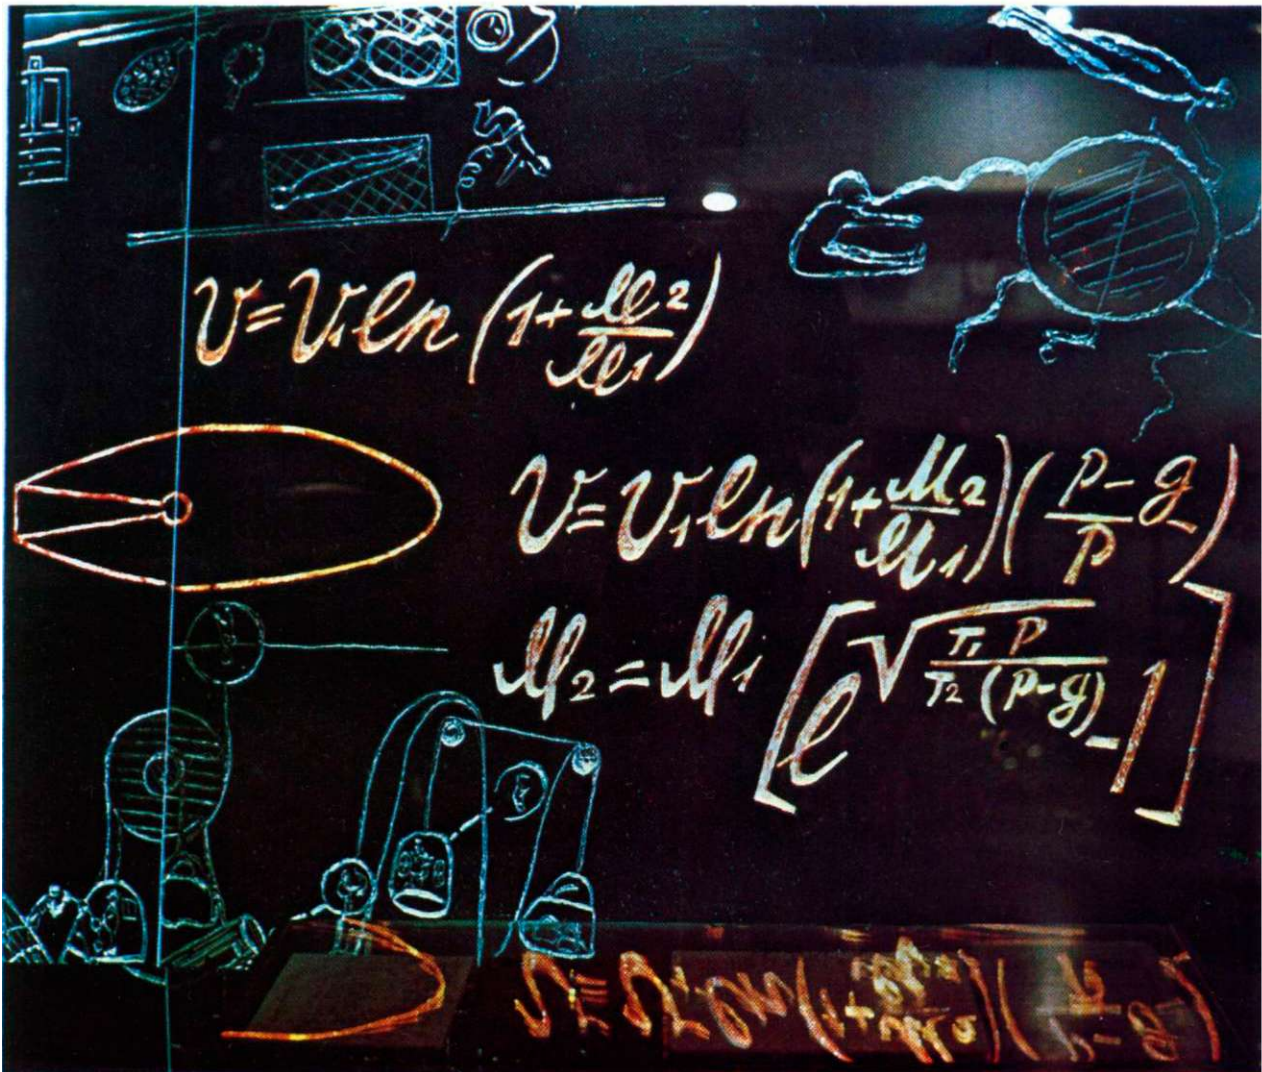 V = V₁ ln (1 + M2/M1)
V = V₁ ln (1 + M2/M1) (P - g / P)
M₂ = M₁ [e^√(T₁ P / T₂ (P - g)) - 1]